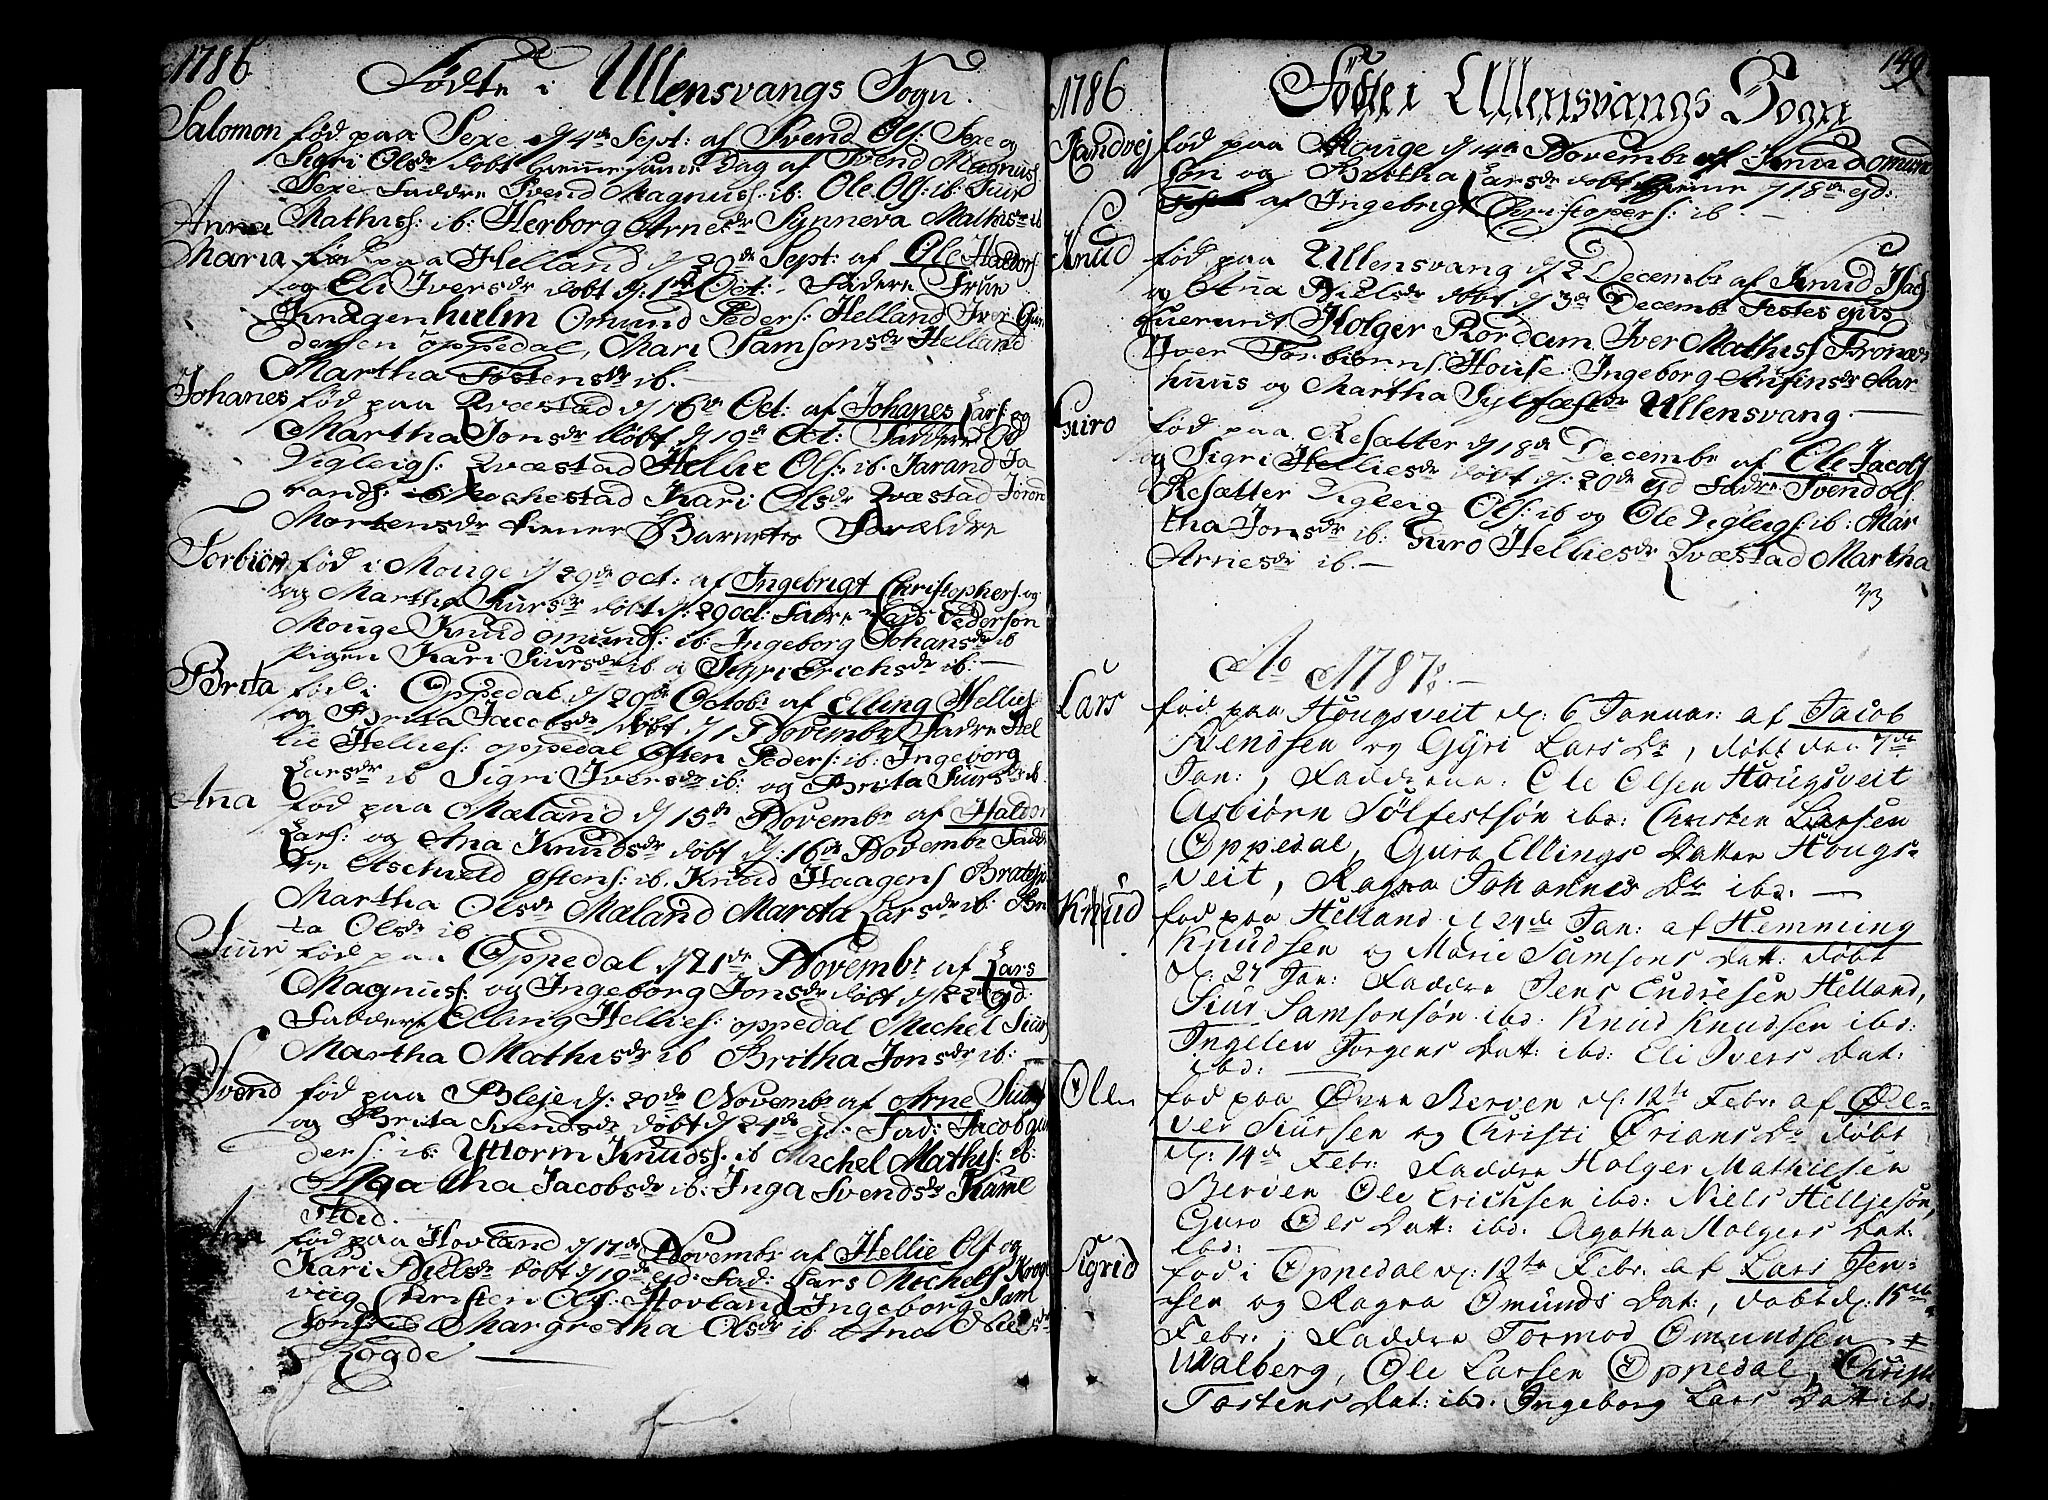 1786
Fødte i Ullensvangs Sogn.
Salomon fød paa Sexe d 4de Sept: af Svend Ols: Sexe og
Sigri Olsdr døbt hiemme samme Dag af Svend Magnuss:
Sexe Faddre Svend Magnuss: ib: Ole Ols: ib: Siur
Mathiss: ib: Herborg Arnesdr Synneva Mathisdr ib
Anna
Maria fød paa Helland d 29de Sept: af Ole Haldors:
og Eli Iversdr døbt d: 1ste Oct: Fadere Frue
Knagenhielm Omund Peders: Helland Iver Gun
dersen oppedal, Mari Samsonsdr Helland
Martha Tostensdr ib.
Johanes fød paa Qvæstad d 16de Oct: af Johanes Lars: og
Martha Jonsdr døbt d 19de Oct: Faddere Od
Vigleigs: Qvæstad Hellie Ols: ib. Jarand Ja
rands: ib: Kari Olsdr Qvæstad Joron
Mortensdr tiener Barnets Forældre
Torbiørn fød i Mouge d 29de Oct: af Ingebrigt Christophers: og
og Martha Siursdr døbt d: 29 Oct: Fadre Lars Pederson
Mouge Knud omunds: ib: Ingeborg Johansdr ib
Pigen Kari Siursdr ib og Sigri Erichsdr ib:
Brita fød i Oppedal d 29de Octobr af Elling Hellies:
og Brita Jacobsdr døbt d 1 Novembr Fadre Hel
lie Hellies: oppedal Østen Peders: ib: Ingeborg
Larsdr ib Sigri Iversdr ib: og Brita Siursdr ib
Ana fød paa Mæland d 15de Novembr af Haldor
Lars: og Ana Knudsdr døbt d: 16de Novembr Fadd
re Aschuld østens: ib. Knud Haagens
Martha Olsdr Mæland Marita Larsdr ib: Bri
ta Olsdr ib
Siur fød paa Oppedal d 21de Novembr af Lars
Magnuss: og Ingeborg Jonsdr døbt d 22de ejd:
Faddere Elling Hellies: oppedal Michel Siurs
Martha Mathisdr ib Britha Jonsdr ib:
Svend fød paa Bleje d: 20de Novembr af Arne Siurs
og Brita Svendsdr døbt d 24de ejd: Fad: Jacob Gun
ders: ib: Uttorm Knuds: ib Michel Mathis: ib:
Agatha Jacobsdr ib: Inga Svendsdr
Stad.
Ana fød paa Hovland d 17de Novembr af Hellie Ols og
Kari Nielsdr døbt d 19de ejd: Fad: Lars Michels Krog
viig Christen Ols: Hovland Ingeborg Sam
Margretha Olsdr ib Ana
Rogde
149
1786
Fødte i Ullensvangs Sogn
fød paa Mouge d 14de Novembr af Knud Omund
søn og Britha Larsdr døbt hjemme d 18de ejd:
af Ingebrigt Christophers: ib.
Knud fød paa Ullensvang d 2 Decembr af Knud
og Ana Nielsdr døbt d 3de Decembr Testes ejus
fuerunt Holger Rørdam Iver Mathiss
Iver Torbiørns. House Ingeborg Anfinsdr Aar
huus og Martha Sylfæstdr Ullensvang.
Guro fød paa Resætter d 18de Decembr af Ole Jacobs
og Sigri Helliesdr døbt d: 20de ejd Fadre Svend Ols
Resætter Vigleig Ols: ib og Ole Vigleigs: ib: Mar
tha Jonsdr ib: Guro Helliesdr Qvæstad Martha
Arnesdr ib.
73
Ao 1787.
Lars fød paa Hougsveit d: 6 Januar: af Jacob
Svendsen og Gyri Lars Dr, døbt den 7de
Jan:, Fadderne: Ole Olsen Hougsveit
Asbiørn Sølfestsøn ibd: Christen Larsen
Oppedal, Guro Ellings Datter Hougs-
veit, Ragna Johannes Dr ibd.
Knud fød paa Helland d 24de Jan: af Hemming
Knudsen og Marie Samsons Datt: døbt
d: 27 Jan: Faddre Jens Endresen Helland,
Siur Samsonsøn ibd: Knud Knudsen ibd:
Ingelev Jørgens Datt: ibd: Eli Ivers Dat:
ibd:
Ole fød paa Øvre Berven d: 12te Febr: af Øl-
ver Siursen og Christi Ørians Dr døbt
d: 14de Febr: Faddre Holger Mathiesen
Berven Ole Erichsen ibd: Niels Helljesøn,
Guro Ols Datt: ibd: Agatha Holgers Dat:
ibd:
Sigrid fød i Oppedal d: 12te Febr: af Lars Jen-
sen og Ragna Omunds Dat:, døbt d: 15de
Febr:, Faddre Tormod Omundsen
Walberg, Ole Larsen Oppedal, Christi
Tostens Dat: ibd. Ingeborg Lars Datt ibd: